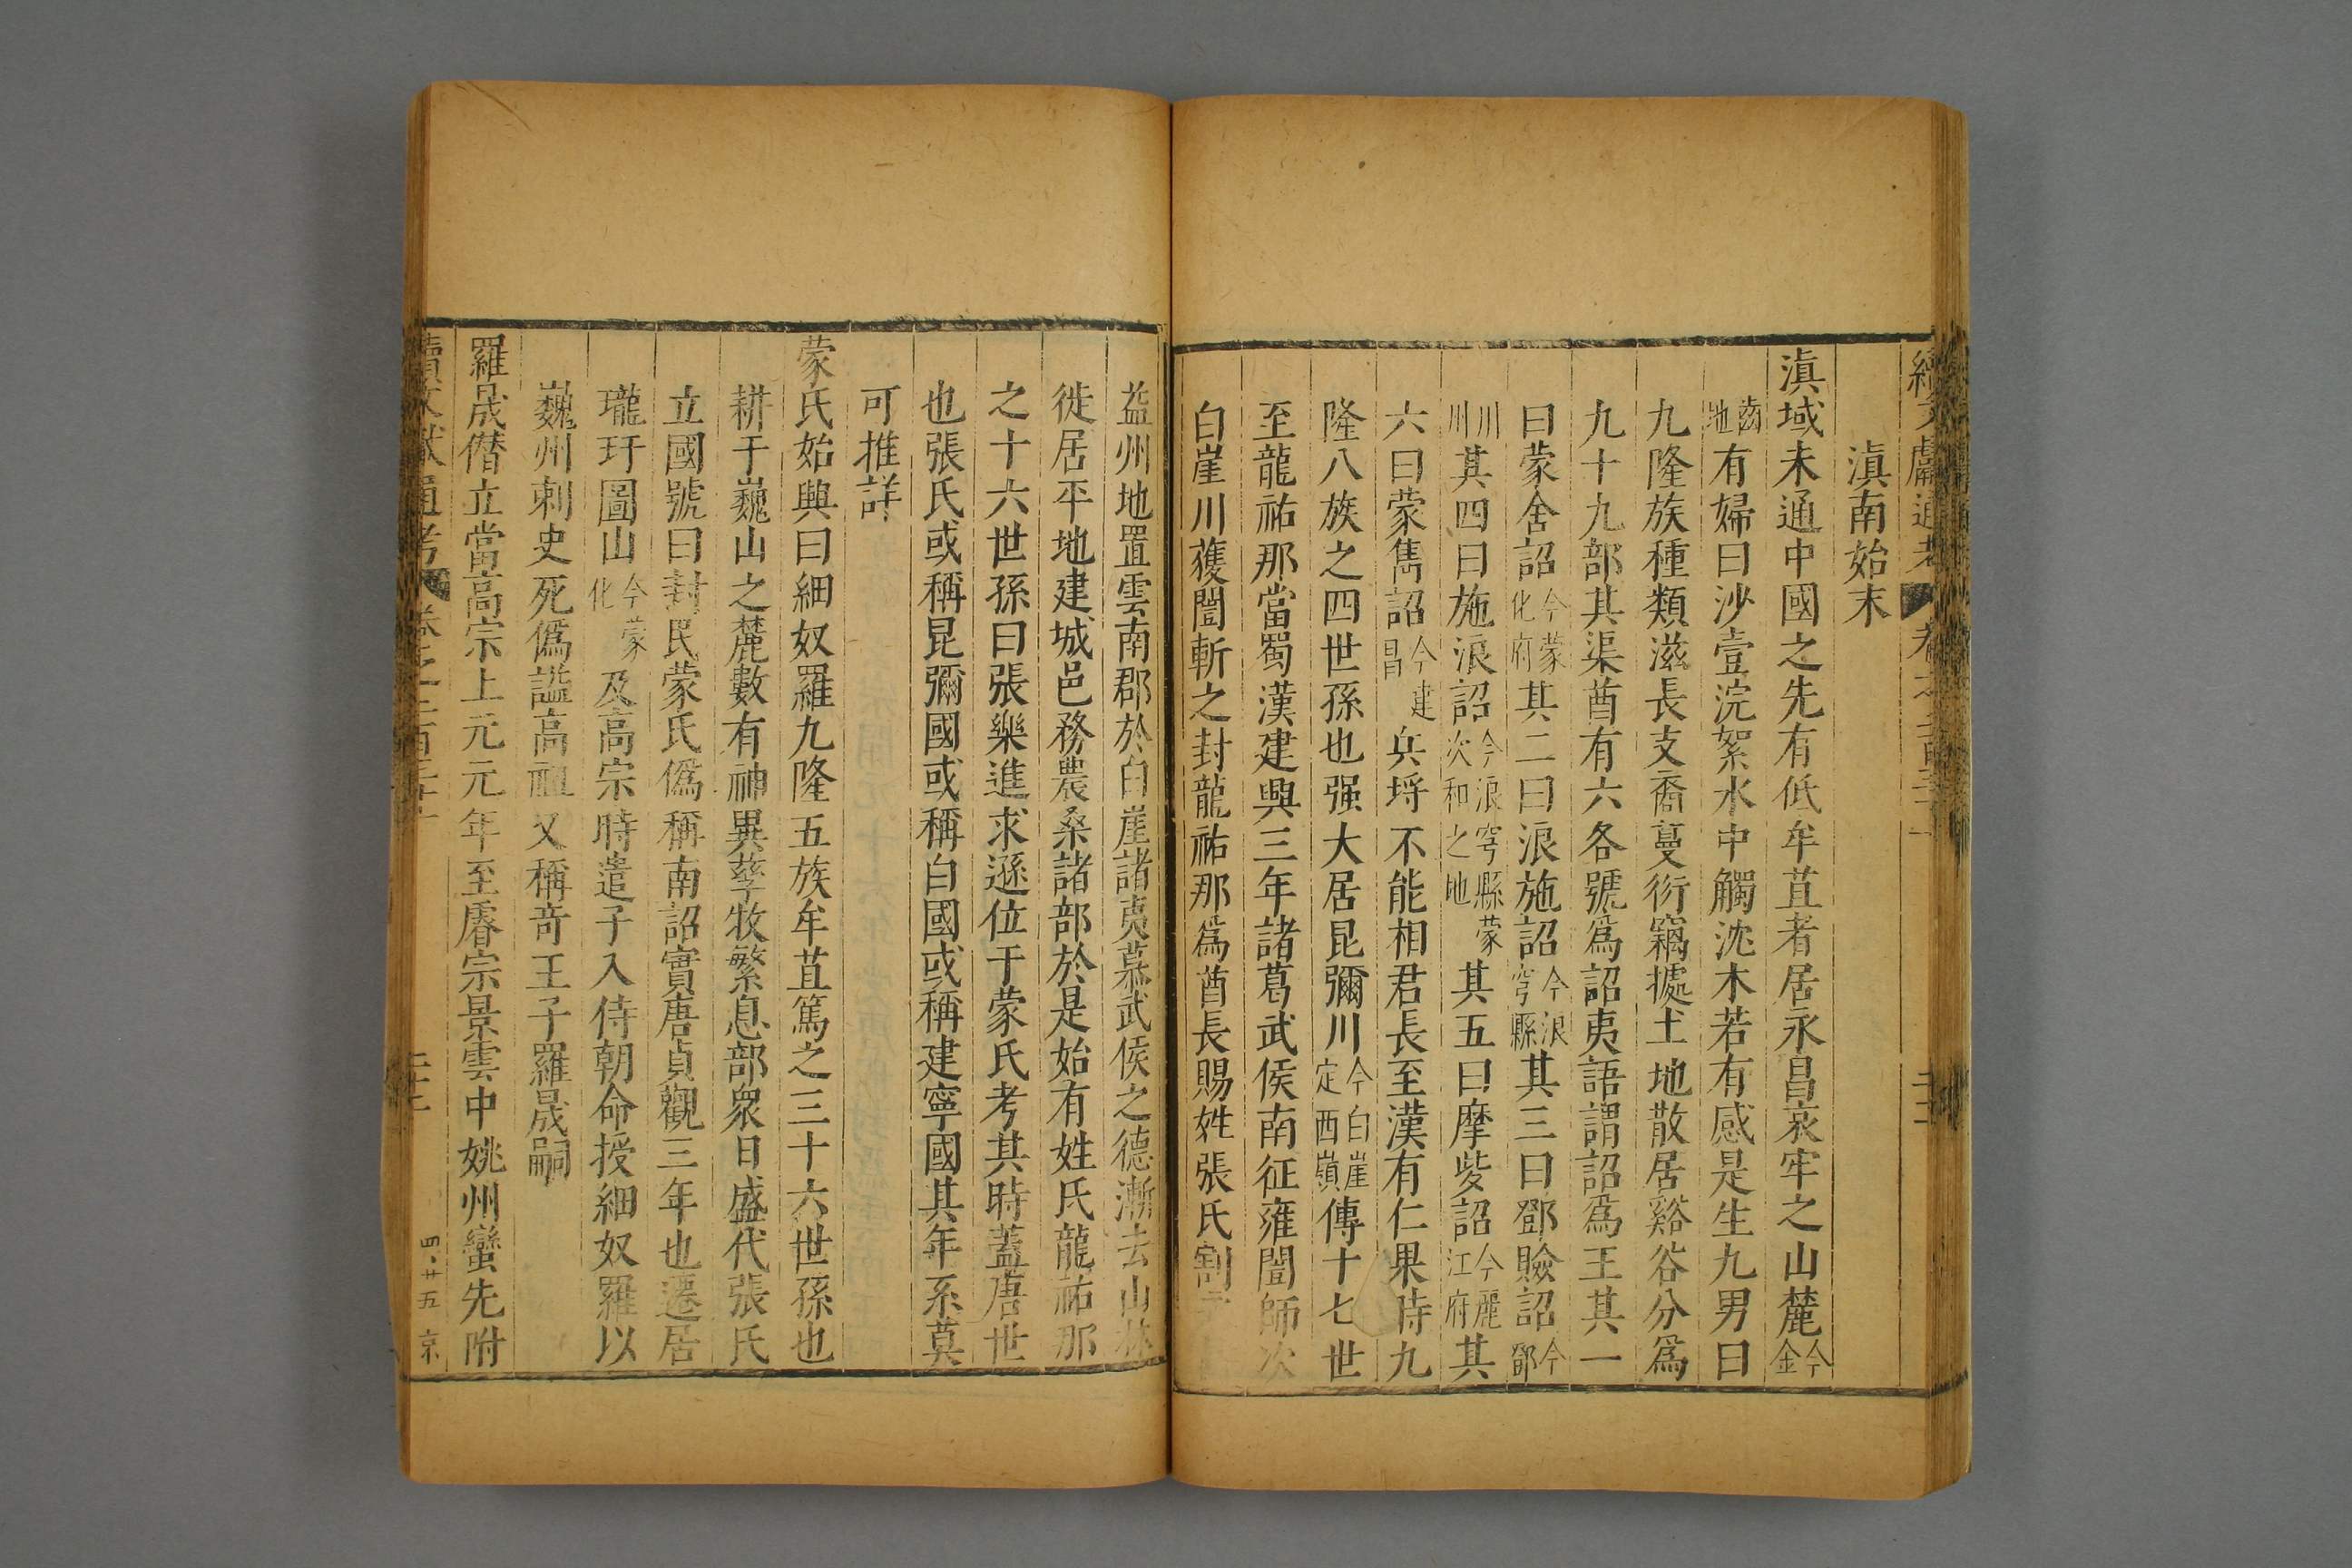 滇南始末
滇域未通中國之先有低牟苴者居永昌哀牢之山麓今金
齒地有婦曰沙壹浣絮水中觸沈木若有感是生九男曰
九隆族種類滋長支裔蔓衍竊據土地散居谿谷分爲
九十九部其渠酋有六各號爲詔夷語謂詔爲王其一
曰蒙舍詔今蒙化府其二曰浪施詔今浪穹縣其三曰鄧賧詔今鄧
川州其四曰施浪詔今浪穹縣蒙次和之地其五曰摩些詔今麗江府其
六曰蒙雋詔今建昌兵埓不能相君長至漢有仁果時九
隆八族之四世孫也强大居昆彌川今白崖定西嶺傳十七世
至龍祐那當蜀漢建興三年諸葛武侯南征雍闓師次
白崖川獲闓斬之封龍祐那爲酋長賜姓張氏割
益州地置雲南郡於白崖諸夷慕武侯之德漸去山林
徙居平地建城邑務農桑諸部於是始有姓氏龍祐那
之十六世孫曰張樂進求遜位于蒙氏考其時蓋唐世
也張氏或稱昆彌國或稱白國或稱建寧國其年系莫
可推詳
蒙氏始興曰細奴羅九隆五族牟苴篤之三十六世孫也
耕于巍山之麓數有神異孳牧繁息部衆日盛代張氏
立國號曰封民蒙氏僞稱南詔實唐貞觀三年也遷居
瓏玗圖山今蒙化及高宗時遣子入侍朝命授細奴羅以
巍州刺史死僞謚高祖又稱奇王子羅晟嗣
羅晟僣立當高宗上元元年至睿宗景雲中姚州蠻先附
四·廿五 京